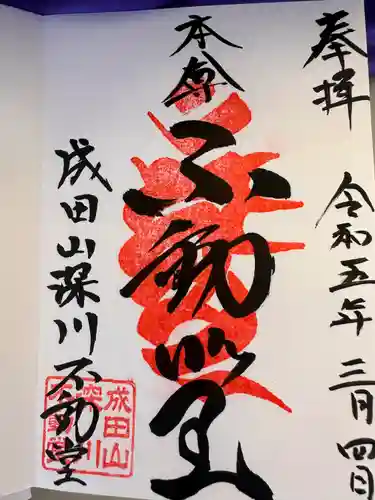 奉拝
令和五年三月四日
本尊
不動明王
成田山深川不動堂
成田山
深川
不動堂